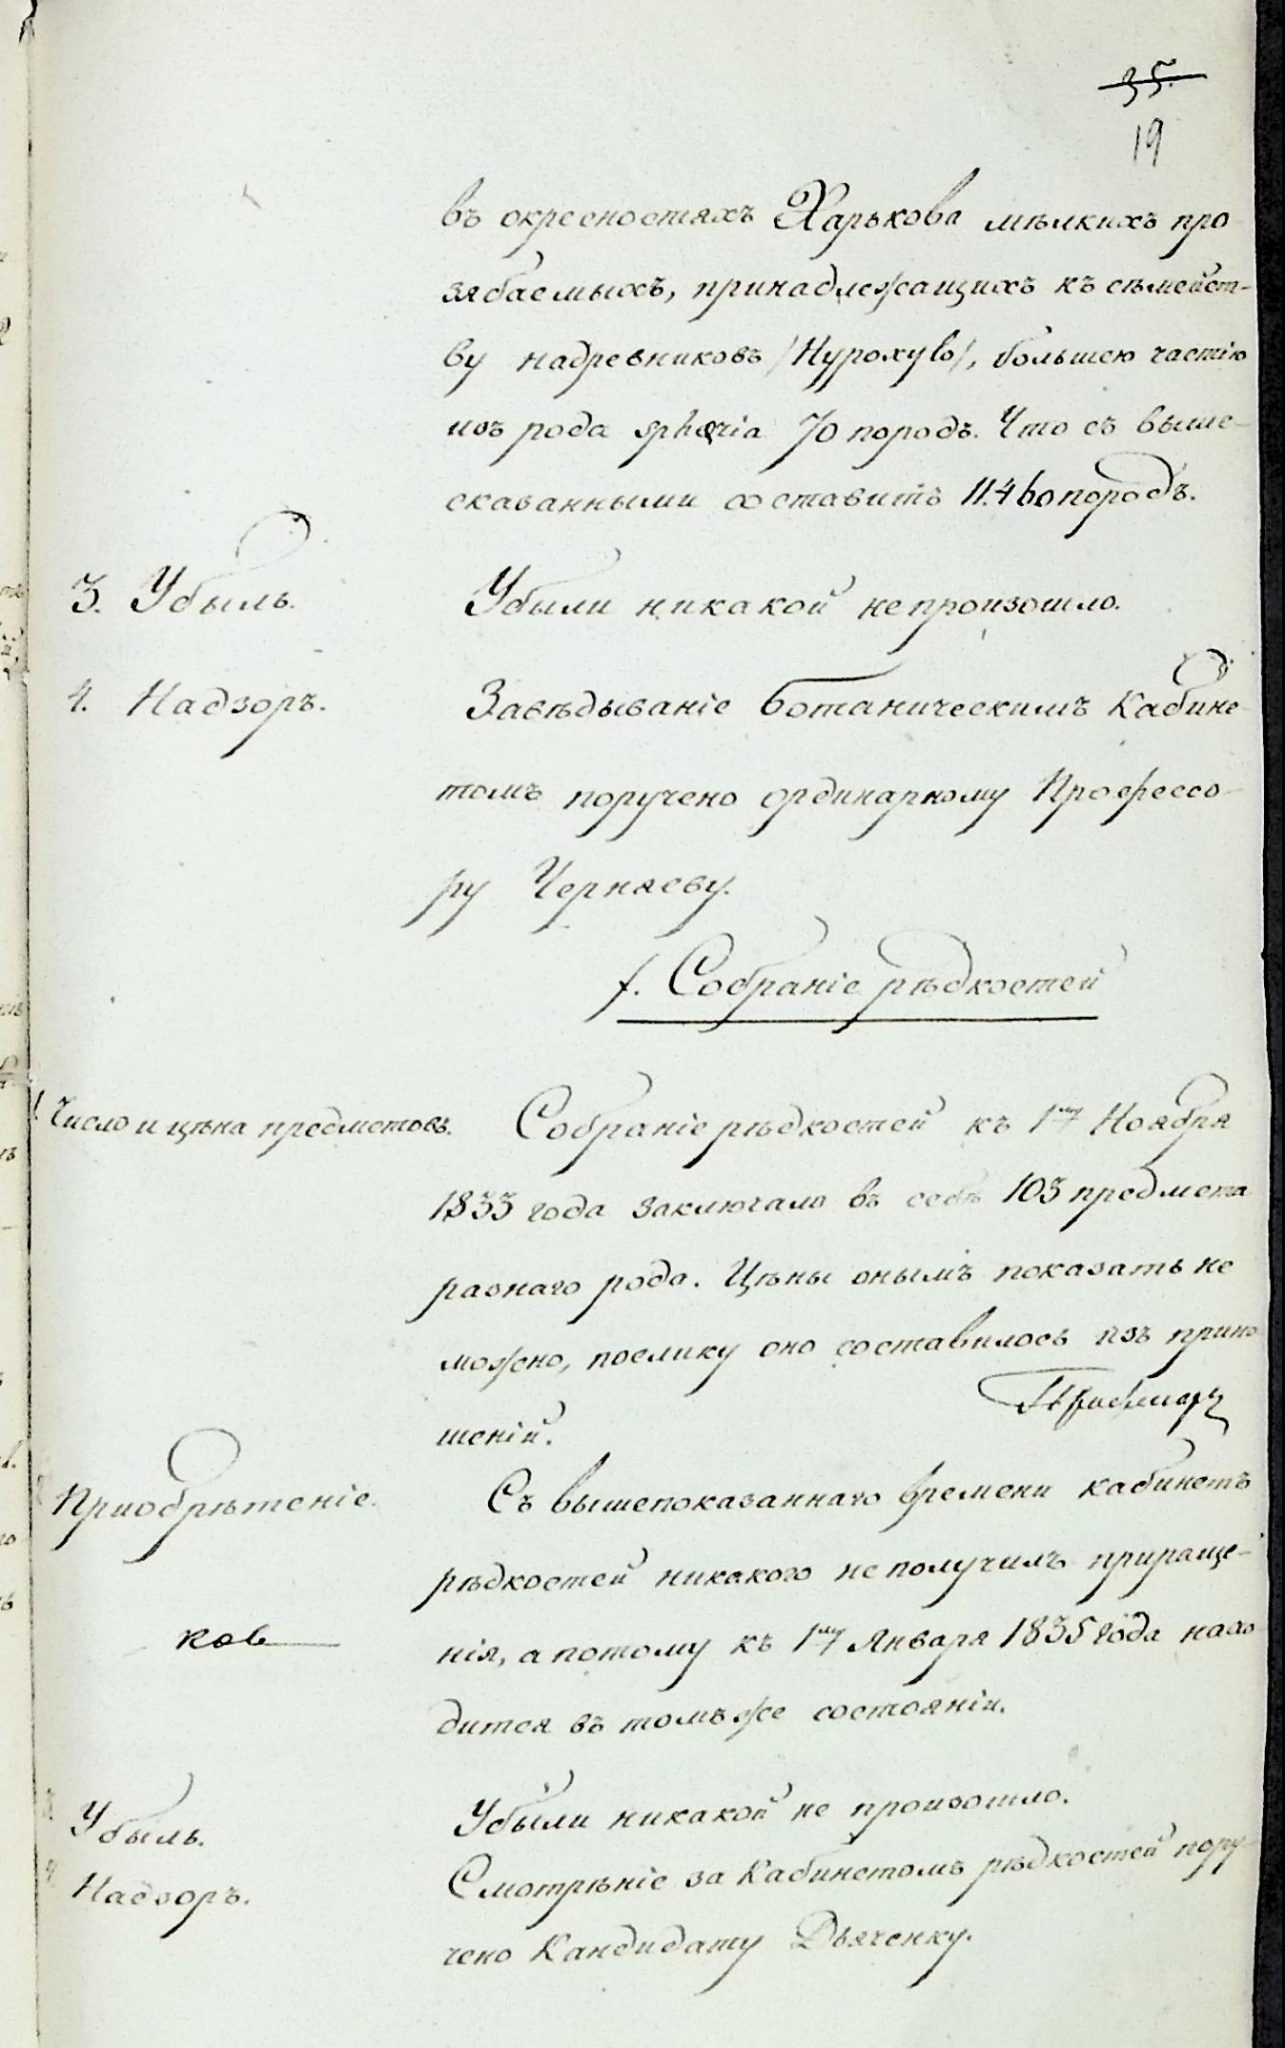 35.
19
въ окресностяхъ Харькова мѣлкихъ про-
зябаемыхъ, принадлежащихъ къ сѣмейст-
ву надревниковъ /Hypoxylo/, большею частію
изъ рода sphæria 70 породъ. Что съ выше-
сказанными составитъ 11.460 породъ.
3. Убыль. Убыли никакой не произошло.
4. Надзоръ. Завѣдываніе Ботаническимъ Кабине-
томъ поручено ординарному Профессо-
ру Черняеву.
f. Собраніе рѣдкостей
1. Число и цѣна предметовъ. Собраніе рѣдкостей къ 1му Ноября
1833 года заключало въ себѣ 103 предмета
разнаго рода. Цѣны онымъ показать не
можно, поелику оно составилось изъ прино
шеній.
Приобрѣтеніе. Съ вышепоказаннаго времени кабинетъ
рѣдкостей никакого не получилъ прираще-
нія, а потому къ 1му Января 1835 года нахо
ков
дится въ томъ же состояніи.
Убыль. Убыли никакой не произошло.
Надзоръ. Смотрѣніе за Кабинетомъ рѣдкостей пору-
чено Кандидату Дьяченку.